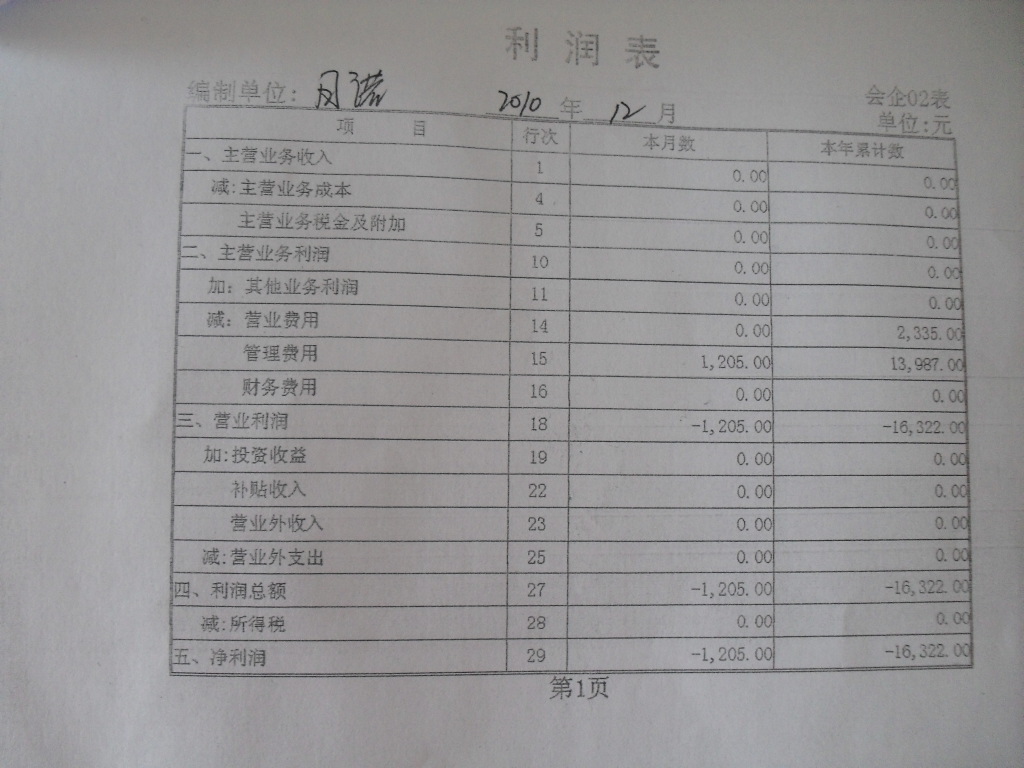 利润表
会企02表
编制单位: 2010 年 12 月 单位:元
项 目 行次 本月数 本年累计数
一、主营业务收入 1 0.00 0.00
减:主营业务成本 4 0.00 0.00
主营业务税金及附加 5 0.00 0.00
二、主营业务利润 10 0.00 0.00
加: 其他业务利润 11 0.00 0.00
减: 营业费用 14 0.00 2,335.00
管理费用 15 1,205.00 13,987.00
财务费用 16 0.00 0.00
三、营业利润 18 -1,205.00 -16,322.00
加:投资收益 19 0.00 0.00
补贴收入 22 0.00 0.00
营业外收入 23 0.00 0.00
减:营业外支出 25 0.00 0.00
四、利润总额 27 -1,205.00 -16,322.00
减:所得税 28 0.00 0.00
五、净利润 29 -1,205.00 -16,322.00
第1页